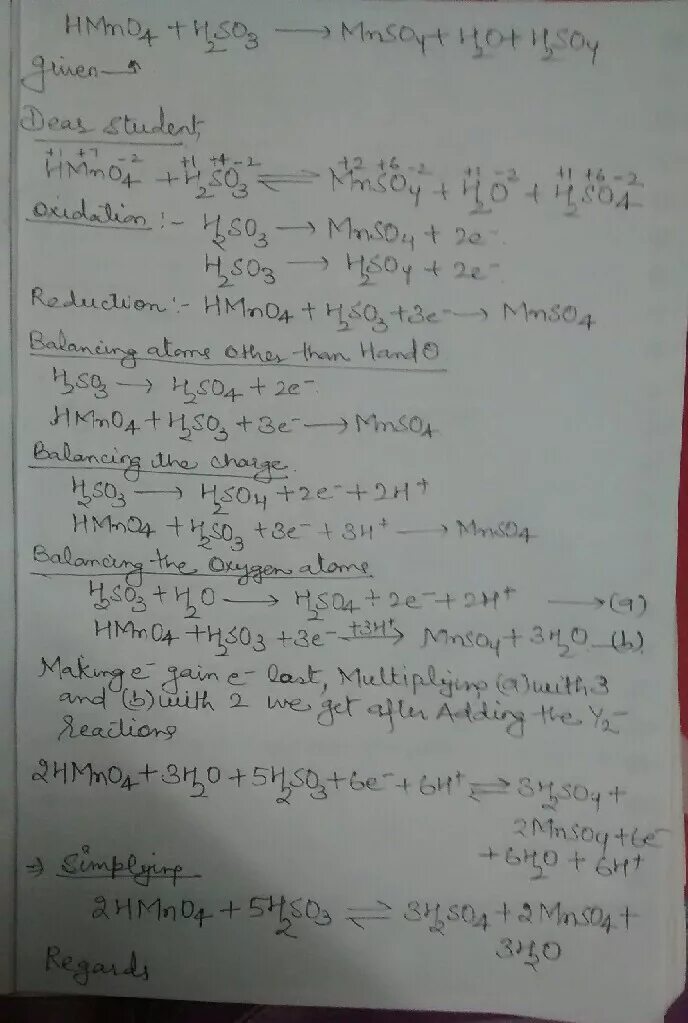 HMnO4 + H2SO3 ⟶ MnSO4 + H2O + H2SO4
given →
Dear student,
+1 +7 -2 +1 +4 -2 +2 +6 -2 +1 -2 +1 +6 -2
HMnO4 + H2SO3 ⇌ MnSO4 + H2O + H2SO4
Oxidation :- H2SO3 ⟶ MnSO4 + 2e-.
H2SO3 ⟶ H2SO4 + 2e-.
Reduction :- HMnO4 + H2SO3 + 3e- ⟶ MnSO4
Balancing atoms other than H and O
H2SO3 ⟶ H2SO4 + 2e-.
HMnO4 + H2SO3 + 3e- ⟶ MnSO4
Balancing the charge.
H2SO3 ⟶ H2SO4 + 2e- + 2H+
HMnO4 + H2SO3 + 3e- + 3H+ ⟶ MnSO4
Balancing the Oxygen atoms
H2SO3 + H2O ⟶ H2SO4 + 2e- + 2H+ ⟶ (a)
HMnO4 + H2SO3 + 3e- +3H+⟶ MnSO4 + 3H2O - (b)
Making e- gain e- last, Multiplying (a) with 3
and (b) with 2 we get after Adding the Y2-
reactions
2HMnO4 + 3H2O + 5H2SO3 + 6e- + 6H+ ⇌ 3H2SO4 +
2MnSO4 + 6e-
+ 6H2O + 6H+
⇒ Simplying
2HMnO4 + 5H2SO3 ⇌ 3H2SO4 + 2MnSO4 +
3H2O
Regards